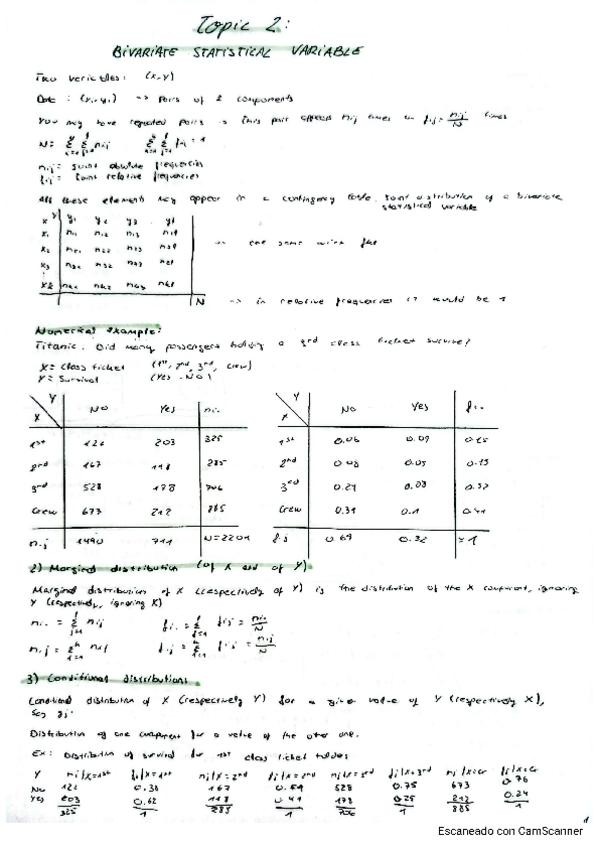 Topic 2:
BIVARIATE STATISTICAL VARIABLE
Two variables: (X,Y)
Data: (xi,yj) → Pairs of 2 components
You may have repeated pairs → this pair appears nij times or fij = nij/N times
N = Σ Σ nij Σ Σ fij = 1
nij = joint absolute frequencies
fij = joint relative frequencies
All these elements may appear in a contingency table. Joint distribution of a bivariate
statistical variable
X Y y1 y2 y3 yl
x1 n11 n12 n13 n1l
x2 n21 n22 n23 n2l
x3
xk nk1 nk2 nk3 nkl
→ the same with fij
N → in relative frequencies it would be 1
Numerical example:
Titanic. Did many passengers holding a 3rd class ticket survive?
X = Class ticket (1st, 2nd, 3rd, crew)
Y = Survival (Yes, NO)
X Y No Yes ni.
1st 122 203 325
2nd 167 118 285
3rd 528 178 706
Crew 673 212 885
n.j 1490 711 N=2201
X Y No Yes fi.
1st 0.06 0.09 0.15
2nd 0.08 0.05 0.13
3rd 0.24 0.08 0.32
Crew 0.31 0.1 0.41
f.j 0.32 1
2) Marginal distribution (of X and of Y)
Marginal distribution of X (respectively of Y) is the distribution of the X component, ignoring
Y (respectively, ignoring X)
ni. = Σ nij fi. = Σ fij = ni./N
n.j = Σ nij f.j = Σ fij = n.j/N
3) Conditional distributions
Conditional distribution of X (respectively Y) for a given value of Y (respectively X),
say yj:
Distribution of one component for a value of the other one.
Ex: Distribution of survival for 1st class ticket holders
Y nj/X=1st fj/X=1st nj/X=2nd fj/X=2nd nj/X=3rd fj/X=3rd nj/X=Cr fj/X=Cr
No 122 0.38 167 0.59 528 0.75 673 0.76
Yes 203 0.62 118 0.41 178 0.25 212 0.24
325 1 285 1 706 1 885 1
Escaneado con CamScanner